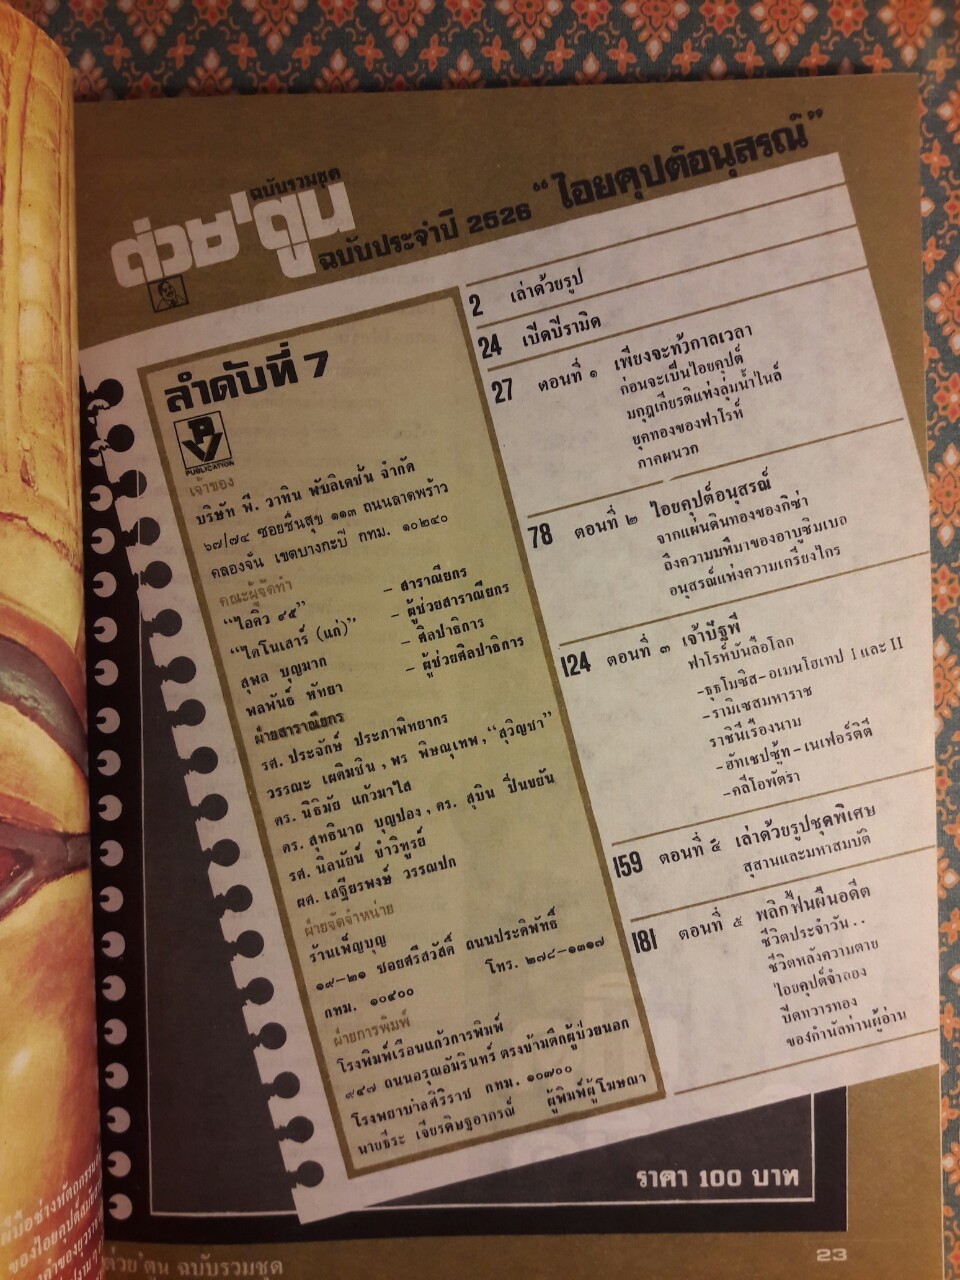 ฉบับรวมชุด
ต่วย'ตูน
ฉบับประจำปี 2526 “ไอยคุปต์อนุสรณ์”
ลำดับที่ 7
PV
PUBLICATION
เจ้าของ
บริษัท พี. วาทิน พับลิเคชั่น จำกัด
๖๗/๗๔ ซอยชื่นสุข ๑๑๓ ถนนลาดพร้าว
คลองจั่น เขตบางกะปิ กทม. ๑๐๒๔๐
คณะผู้จัดทำ
“ไอคิว ๙๕” – สาราณียกร
“ไดโนเสาร์ (แก่)” – ผู้ช่วยสาราณียกร
สุพล บุญมาก – ศิลปาธิการ
พลพันธ์ หัทยา – ผู้ช่วยศิลปาธิการ
ฝ่ายสาราณียกร
รศ. ประจักษ์ ประภาพิทยากร
วรรณะ เผดิมชิน, พร พิษณุเทพ, “สุวิญชา”
ดร. นิธิมัย แก้วมาไส
ดร. สุทธินาถ บุญปอง, ดร. สุบิน ปิ่นขยัน
รศ. นิลนัยน์ ขำวิทูรย์
ผศ. เสฐียรพงษ์ วรรณปก
ฝ่ายจัดจำหน่าย
ร้านเพ็ญบุญ
๑๙-๒๑ ซอยศรีสวัสดิ์ ถนนประดิพัทธ์
กทม. ๑๐๔๐๐ โทร. ๒๗๘-๑๓๑๗
ฝ่ายการพิมพ์
โรงพิมพ์เรือนแก้วการพิมพ์
๙๔๗ ถนนอรุณอัมรินทร์ ตรงข้ามตึกผู้ป่วยนอก
โรงพยาบาลศิริราช กทม. ๑๐๗๐๐
นายธีระ เจียรดิษฐอาภรณ์ ผู้พิมพ์ผู้โฆษณา
2 เล่าด้วยรูป
24 เปิดปิรามิด
27 ตอนที่ ๑ เพียงจะท้วกาลเวลา
ก่อนจะเป็นไอยคุปต์
มกุฎเกียรติแห่งลุ่มน้ำไนล์
ยุคทองของฟาโรห์
ภาคผนวก
78 ตอนที่ ๒ ไอยคุปต์อนุสรณ์
จากแผ่นดินทองของกิซ่า
ถึงความมหึมาของอาบูซิมเบล
อนุสรณ์แห่งความเกรียงไกร
124 ตอนที่ ๓ เจ้าปัฐพี
ฟาโรห์บันลือโลก
-ธุธโมซิส-อเมนโฮเทป I และ II
-รามิเซสมหาราช
ราชินีเรืองนาม
-ฮัทเชปซู้ท-เนเฟอร์ติติ
-คลีโอพัตรา
159 ตอนที่ ๕ เล่าด้วยรูปชุดพิเศษ
สุสานและมหาสมบัติ
181 ตอนที่ ๕ พลิกฟื้นผืนอดีต
ชีวิตประจำวัน..
ชีวิตหลังความตาย
ไอยคุปต์จำลอง
ปิดทวารทอง
ของกำนัลท่านผู้อ่าน
ราคา 100 บาท
23
ต่วย'ตูน ฉบับรวมชุด